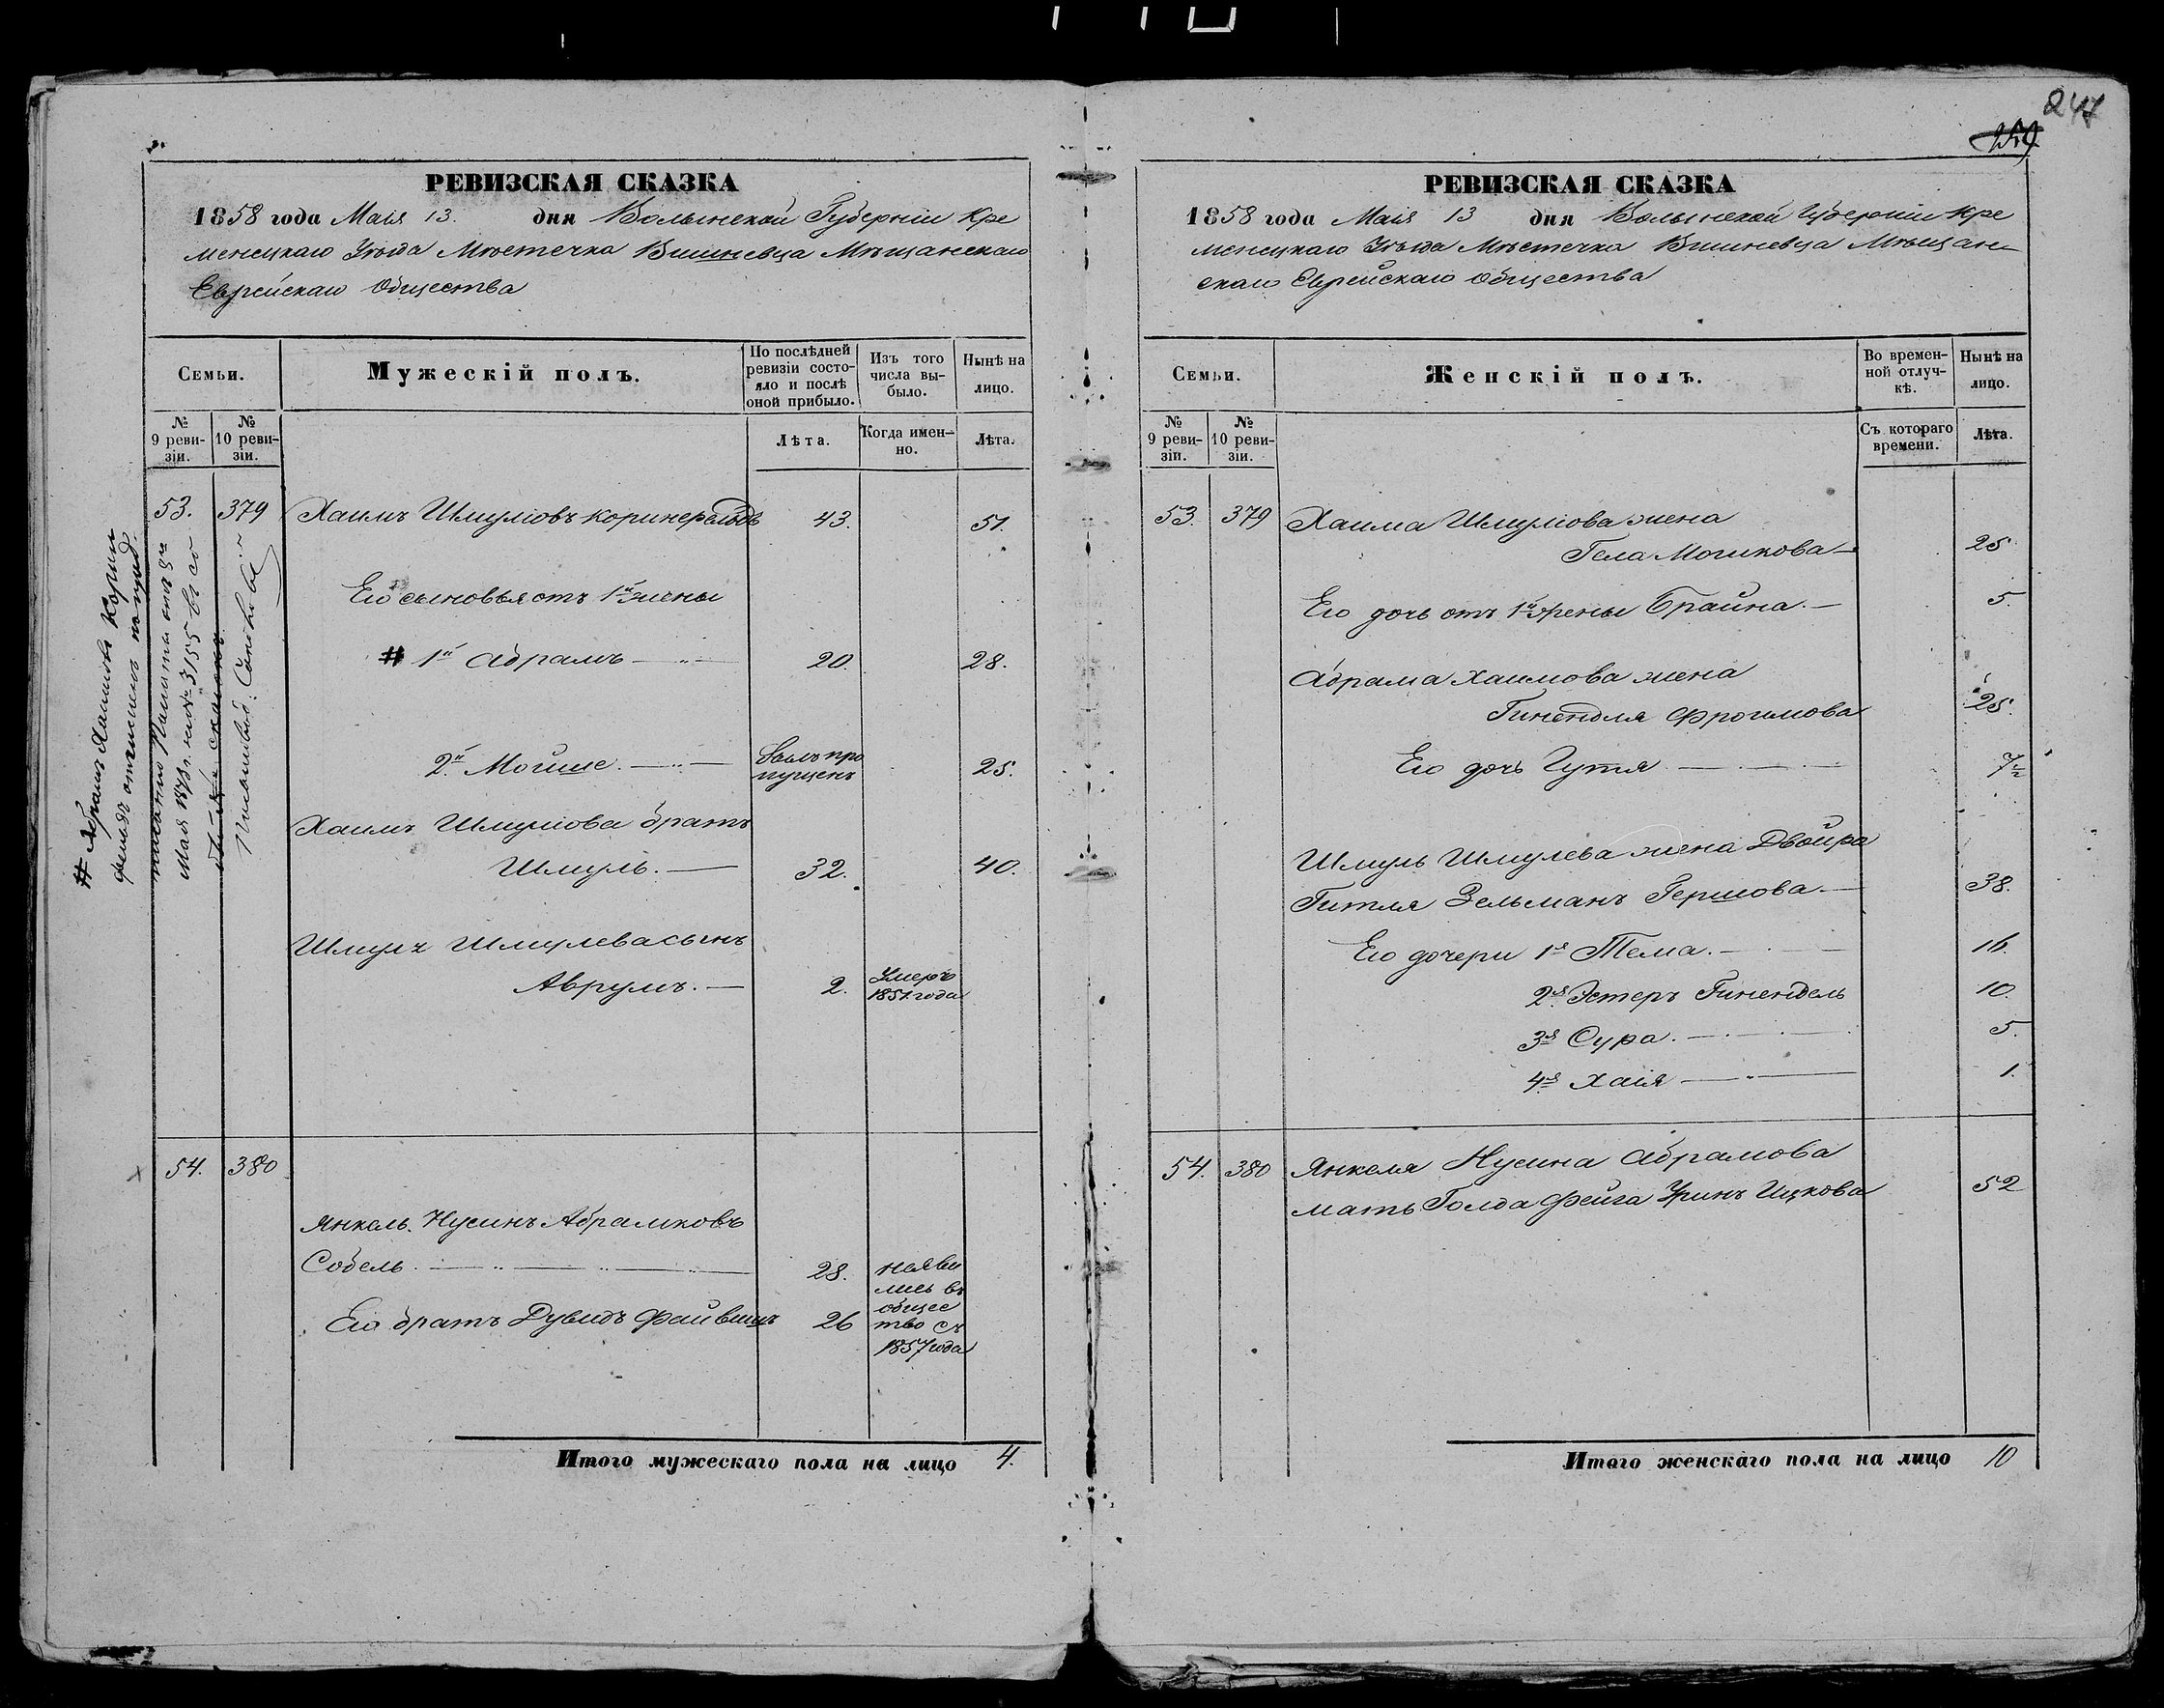 247
259
РЕВИЗСКАЯ СКАЗКА
1858 года Маія 13. дня Волынской Губерніи Кре
менецкаго Уѣзда Мѣстечка Вишневца Мѣщанскаго
Еврейскаго Общества
Семьи.
Мужескій полъ.
По послѣдней ревизіи состо-
яло и послѣ
оной прибыло.
Изъ того
числа вы-
было.
Нынѣ на
лицо.
№
9 реви-
зіи.
№
10 реви-
зіи.
Лѣта.
Когда имен-
но.
Лѣта.
53. 379 Хаимъ Шмуліовъ Коринфельдъ 43. 51.
Его сыновья отъ 1й жены
# 1й Абрамъ 20. 28.
2й Мошше. былъ про
пущенъ 25.
Хаимъ Шмуліова братъ
Шмуль. 32. 40.
Шмуль Шмулева сынъ
Аврумъ. 2. Умеръ
1851 года
54. 380
Янкель Нусинъ Абрамковъ
Собель 28. неяви
лись въ
общес
Его братъ Дувидъ Файвишъ 26 тво съ
1857 года
Итого мужескаго пола на лицо 4.
# Абрамъ Хаимовъ Корин
фельдъ
Маія
РЕВИЗСКАЯ СКАЗКА
1858 года Маія 13 дня Волынской Губерніи Кре
менецкаго Уѣзда Мѣстечка Вишневца Мѣщан-
скаго Еврейскаго Общества
Семьи.
Женскій полъ.
Во времен-
ной отлуч-
кѣ.
Нынѣ на
лицо.
№
9 реви-
зіи.
№
10 реви-
зіи.
Съ котораго
времени.
Лѣта.
53. 379 Хаима Шмуліова жена
Гела Мошкова 25
Его дочь отъ 1й жены Брайна. 5.
Абрама Хаимова жена
Гинендля Фроимова 25.
Его дочь Гутя
Шмуль Шмулева жена Двойра
Гитля Зельманъ Гершова. 38.
Его дочери 1я Тема. 16.
2я Эстеръ Гинендель 10.
3я Сура. 5.
4я Хаія 1.
54. 380 Янкеля Нусина Абрамова
мать Голда Фейга Ицкова 52
Итого женскаго пола на лицо 10